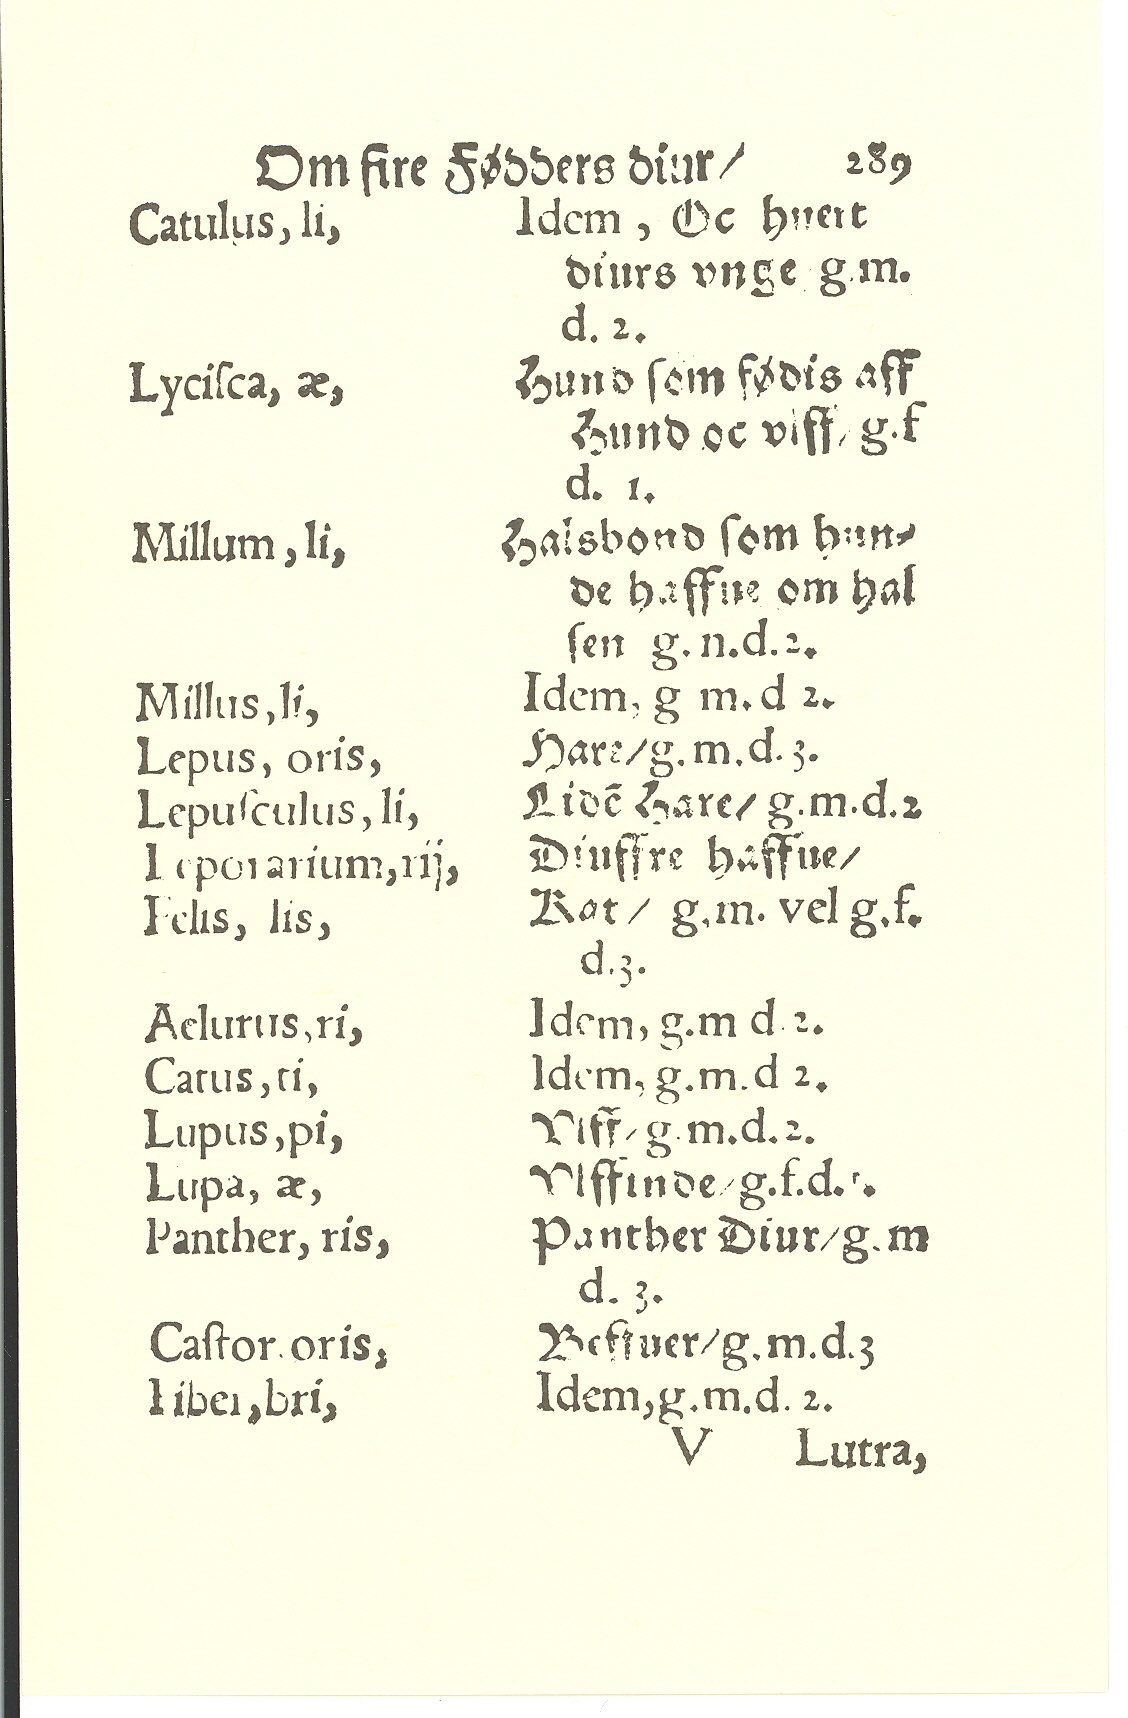 Om fire Fødders diur/ 289
Catulus, li, Idem, Oc huert
diurs vnge g.m.
d. 2.
Lyciſca, æ, Hund ſom fødis aff
Hund oc vlff/ g.f
d. 1.
Millum, li, Halsbond ſom hun⸗
de haffue om hal
ſen g. n.d.2.
Millus, li, Idem, g m. d 2.
Lepus, oris, Hare/g.m.d.3.
Lepuſculus, li, Lidē Hare/ g.m.d.2
Leporarium, rij, Diuffre haffue/
Felis, lis, Kat/ g.m. vel g.f.
d.3.
Aelurus, ri, Idem, g.m d 2.
Catus, ti, Idem, g.m.d 2.
Lupus, pi, Vlff/ g.m.d.2.
Lupa, æ, Vlffinde/g.f.d.1.
Panther, ris, Panther Diur/g.m
d. 3.
Caſtor. oris, Beffuer/g.m.d.3
Fiber, bri, Idem, g.m.d. 2.
V Lutra,